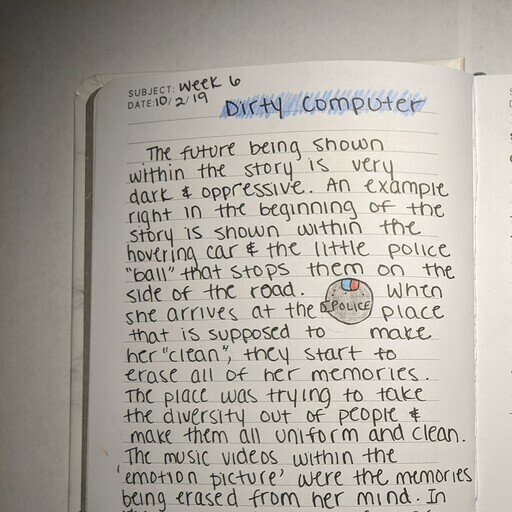 SUBJECT: Week 6
DATE: 10/2/19
Dirty Computer
The future being shown
within the story is very
dark & oppressive. An example
right in the beginning of the
story is shown within the
hovering car & the little police
"ball" that stops them on the
side of the road. When
she arrives at the POLICE place
that is supposed to make
her "clean", they start to
erase all of her memories.
The place was trying to take
the diversity out of people &
make them all uniform and clean.
The music videos within the
'emotion picture' were the memories
being erased from her mind. In